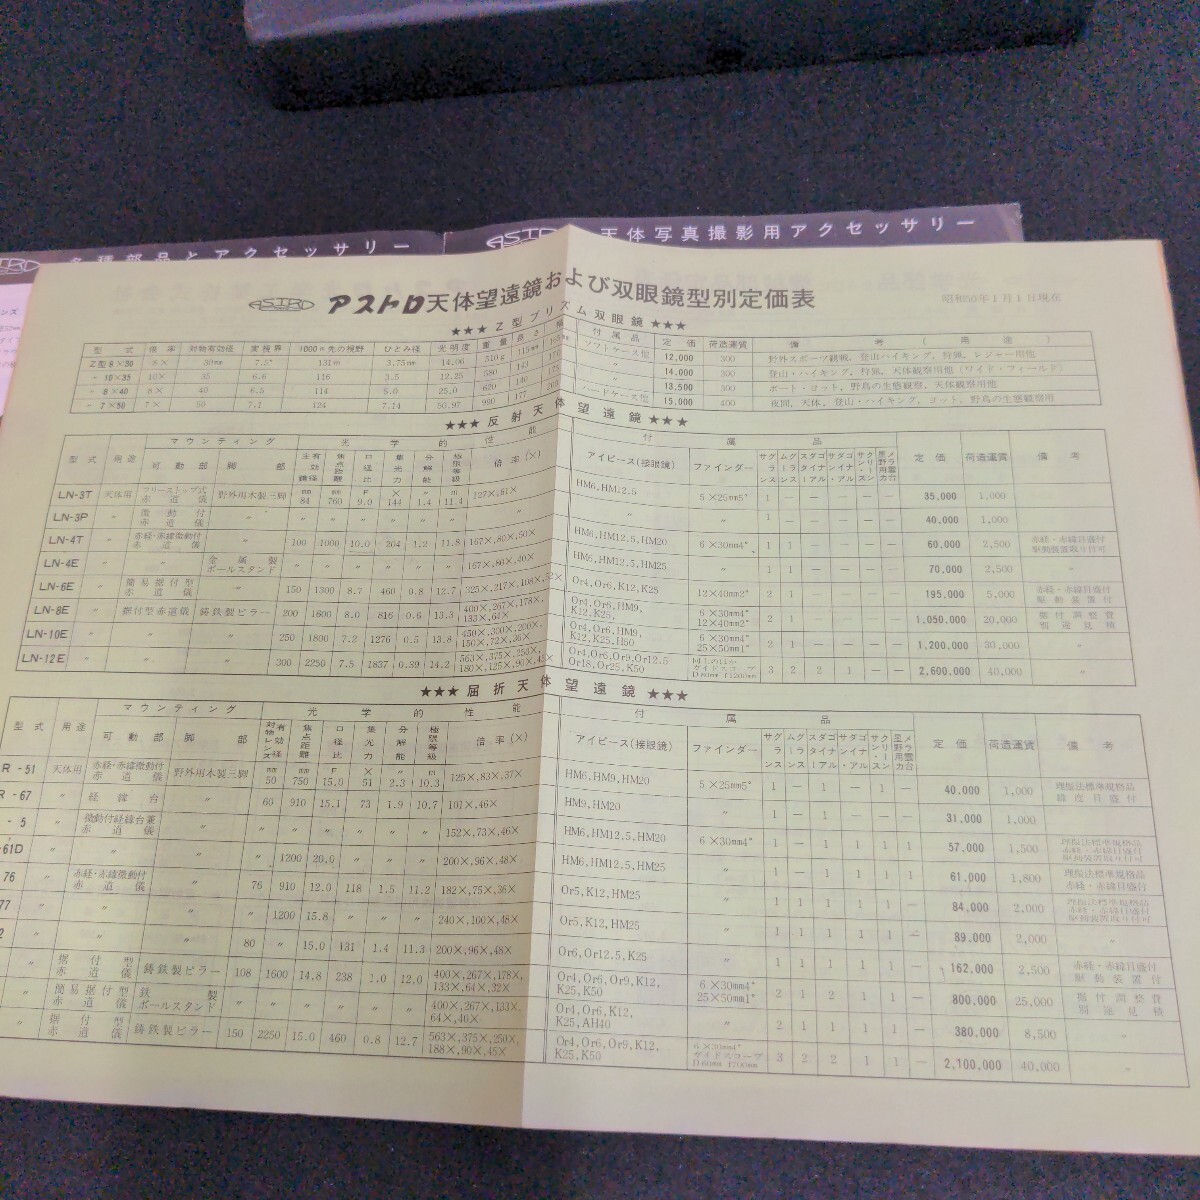 各種部品とアクセッサリー
ASTRO 天体写真撮影用アクセッサリー
ASTRO アストロ天体望遠鏡および双眼鏡型別定価表
昭和50年1月1日現在
★★★ Z型プリズム双眼鏡 ★★★
型式 倍率 対物有効径 実視界 1000m先の視野 ひとみ径 光明度 重量 高さ 幅 付属品 定価 荷造運賃 備考(用途)
Z型8×30 8× 30mm 7.5° 131m 3.75mm 14.06 510g 115mm 165mm ソフトケース他 12,000 300 野外スポーツ観戦, 登山ハイキング, 狩猟, レジャー用他
〃 10×35 10× 35 6.6 116 3.5 12.25 580 143 170 〃 14,000 300 登山・ハイキング, 狩猟, 天体観察用他(ワイド・フィールド)
〃 8×40 8× 40 6.5 114 5.0 25.0 620 140 175 〃 13,500 300 ボート・ヨット, 野鳥の生態観察, 天体観察用他
〃 7×50 7× 50 7.1 124 7.14 50.97 990 177 ハードケース他 15,000 400 夜間, 天体, 登山・ハイキング, ヨット, 野鳥の生態観察用
★★★ 反射天体望遠鏡 ★★★
マウンティング 光学的性能 付属品
型式 用途 可動部 脚部 主鏡有効径 焦点距離 口径比 集光力 分解能 極限等級 倍率(×) アイピース(接眼鏡) ファインダー サングラス ムーングラス 定価 荷造運賃 備考
LN-3T 天体用 フリーストップ式赤道儀 野外用木製三脚 84mm 760mm F9.0 144× 1.4〃 11.4m 127×,61× HM6,HM12.5 5×25mm5° 1 － － － － － 35,000 1,000
LN-3P 〃 微動付赤道儀 〃 〃 〃 〃 〃 〃 〃 〃 〃 〃 1 － － － － － 40,000 1,000
LN-4T 〃 赤経・赤緯微動付赤道儀 〃 100 1000 10.0 204 1.2 11.8 167×,80×,50× HM6,HM12.5,HM20 6×30mm4° 1 1 － － － － 60,000 2,500 赤経・赤緯目盛付駆動装置取り付可
LN-4E 〃 〃 金属製ポールスタンド 〃 〃 〃 〃 〃 〃 167×,80×,40× HM6,HM12.5,HM25 〃 1 1 － － － － 70,000 2,500 〃
LN-6E 〃 簡易据付型赤道儀 〃 150 1300 8.7 460 0.8 12.7 325×,217×,108×,52× Or4,Or6,K12,K25 12×40mm2° 2 1 － － － － 195,000 5,000 赤経・赤緯目盛付駆動装置付
LN-8E 〃 据付型赤道儀 鋳鉄製ピラー 200 1600 8.0 816 0.6 13.3 400×,267×,178×,133×,64× Or4,Or6,HM9,K12,K25, 6×30mm4° 12×40mm2° 2 1 － － － － 1,050,000 20,000 据付調整費別途見積
LN-10E 〃 〃 〃 250 1800 7.2 1276 0.5 13.8 450×,300×,200×,150×,72×,36× Or4,Or6,HM9,K12,K25,H50 6×30mm4° 25×50mm1° 2 1 － － － － 1,200,000 30,000 〃
LN-12E 〃 〃 〃 300 2250 7.5 1837 0.39 14.2 563×,375×,250×,180×,125×,90×,45× Or4,Or6,Or9,Or12.5 Or18,Or25,K50 同上のほかガイドスコープ D80mm f1200mm 3 2 2 1 － － 2,600,000 40,000 〃
★★★ 屈折天体望遠鏡 ★★★
マウンティング 光学的性能 付属品
型式 用途 可動部 脚部 対物レンズ有効径 焦点距離 口径比 集光力 分解能 極限等級 倍率(×) アイピース(接眼鏡) ファインダー サングラス ムーングラス 定価 荷造運賃 備考
R-51 天体用 赤経・赤緯微動付赤道儀 野外用木製三脚 50mm 750mm F15.0 51× 2.3〃 10.3m 125×,83×,37× HM6,HM9,HM20 5×25mm5° 1 － 1 － － － 40,000 1,000 理振法標準規格品緯度目盛付
R-67 〃 経緯台 〃 60 910 15.1 73 1.9 10.7 101×,46× HM9,HM20 〃 1 － 1 － － － 31,000 1,000
-5 〃 微動付経緯台兼赤道儀 〃 〃 〃 〃 〃 〃 〃 152×,73×,46× HM6,HM12.5,HM20 6×30mm4° 1 1 1 1 1 － 57,000 1,500 理振法標準規格品赤経・赤緯目盛付駆動装置取り付可
61D 〃 〃 〃 〃 1200 20.0 〃 〃 〃 200×,96×,48× HM6,HM12.5,HM25 〃 1 1 1 1 1 1 61,000 1,800 理振法標準規格品赤経・赤緯目盛付
76 〃 赤経・赤緯微動付赤道儀 〃 76 910 12.0 118 1.5 11.2 182×,75×,36× Or5,K12,HM25 〃 1 1 1 1 1 － 84,000 2,000 理振法標準規格品赤経・赤緯目盛付駆動装置取り付可
77 〃 〃 〃 〃 1200 15.8 〃 〃 〃 240×,100×,48× Or5,K12,HM25 〃 1 1 1 1 1 － 89,000 2,000 〃
2 〃 〃 〃 80 〃 15.0 131 1.4 11.3 200×,96×,48× Or6,Or12.5,K25 〃 1 1 1 1 1 － 162,000 2,500 赤経・赤緯目盛付駆動装置付
〃 据付型赤道儀 鋳鉄製ピラー 108 1600 14.8 238 1.0 12.0 400×,267×,178×,133×,64×,32× Or4,Or6,Or9,K12,K25,K50 6×30mm4° 25×50mm1° 2 1 2 1 1 － 800,000 25,000 据付調整費別途見積
〃 簡易据付型赤道儀 鉄製ポールスタンド 〃 〃 〃 〃 〃 〃 400×,267×,133×,64×,40× Or4,Or6,K12,K25,AH40 〃 2 1 1 1 1 － 380,000 8,500
〃 据付型赤道儀 鋳鉄製ピラー 150 2250 15.0 460 0.8 12.7 563×,375×,250×,188×,90×,45× Or4,Or6,Or9,K12,K25,K50 6×30mm4° ガイドスコープ D60mm f700mm 3 2 2 1 1 － 2,100,000 40,000 〃